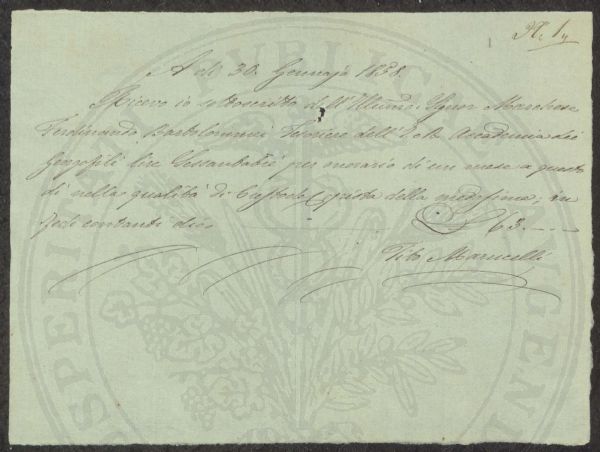 N. 1.
A dì 30. Gennajo 1838.
Ricevo io sottoscritto dall' Illumo: Signor Marchese
Ferdinando Bartolommei Tesoriere dell' I. e R. Accademia dei
Georgofili lire Sessantatre per onorario di un mese a questo
dì nella qualità di Custode Copista della medesima, in
fede contanti dico 63.--
Tito Marucelli
PROSPERITATI PUBLICAE AUGENDAE